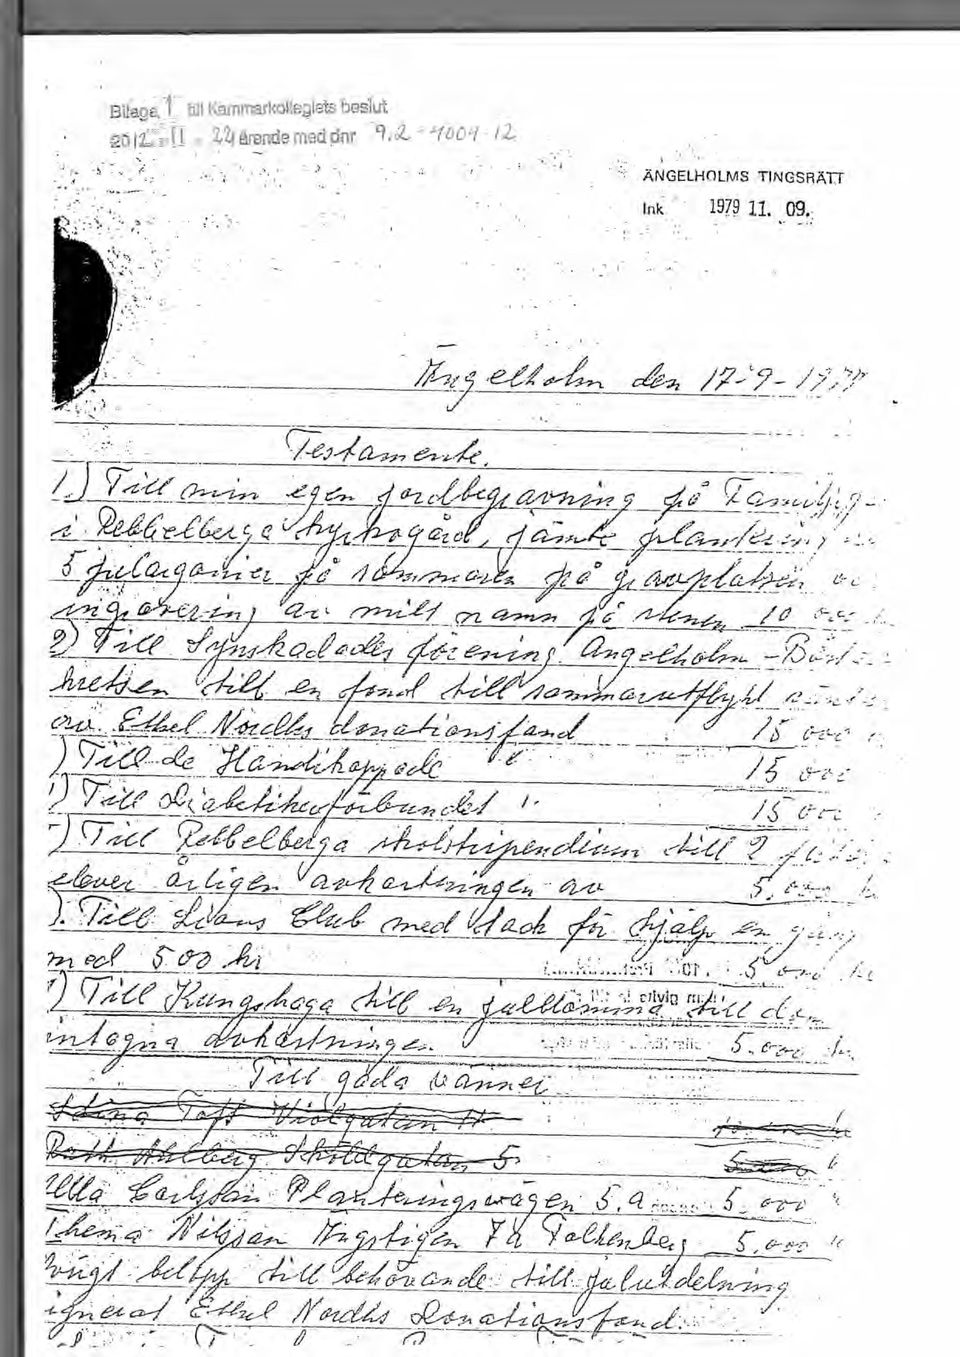 Bilaga 1 till Kammarkollegiets beslut
2012-11-22 i ärende med dnr 9.2-4004-12
ÄNGELHOLMS TINGSRÄTT
Ink 1979 11. 09.
Ängelholm den 17-9-1977
Testamente.
1.) Till min egen jordbegravning på
i Rebbelberga kyrkogård, jämte plantering
5 pelargonier på sommaren på gravplatsen
ingravering av mitt namn på stenen 10 000
2) Till Synskadades förening Ängelholm -
kretsen till en fond till sommarutflykt
av Ethel Nordhs donationsfond 15 000
) Till de Handikappade " 15 000
) Till Diabetikerförbundet " 15 000
) Till Rebbelberga skolstipendium till 2
elever årligen avkastningen av 5.000 kr
). Till Lions Club med tack för hjälp en gång
med 500 kr 5 000 kr
) Till Kungshaga till en julblomma till de
intagna avkastningen 5.000 kr
Till goda vänner
Toft Violgatan
Ahlberg Sköldgatan 5 5 000 "
Ulla Carlsson Planteringsvägen 5.a 5.000 "
Thema Nilsson Ängstigen 7a Falkenberg 5.000 "
belopp till behövande till julutdelning
Ethel Nordhs Donationsfond.